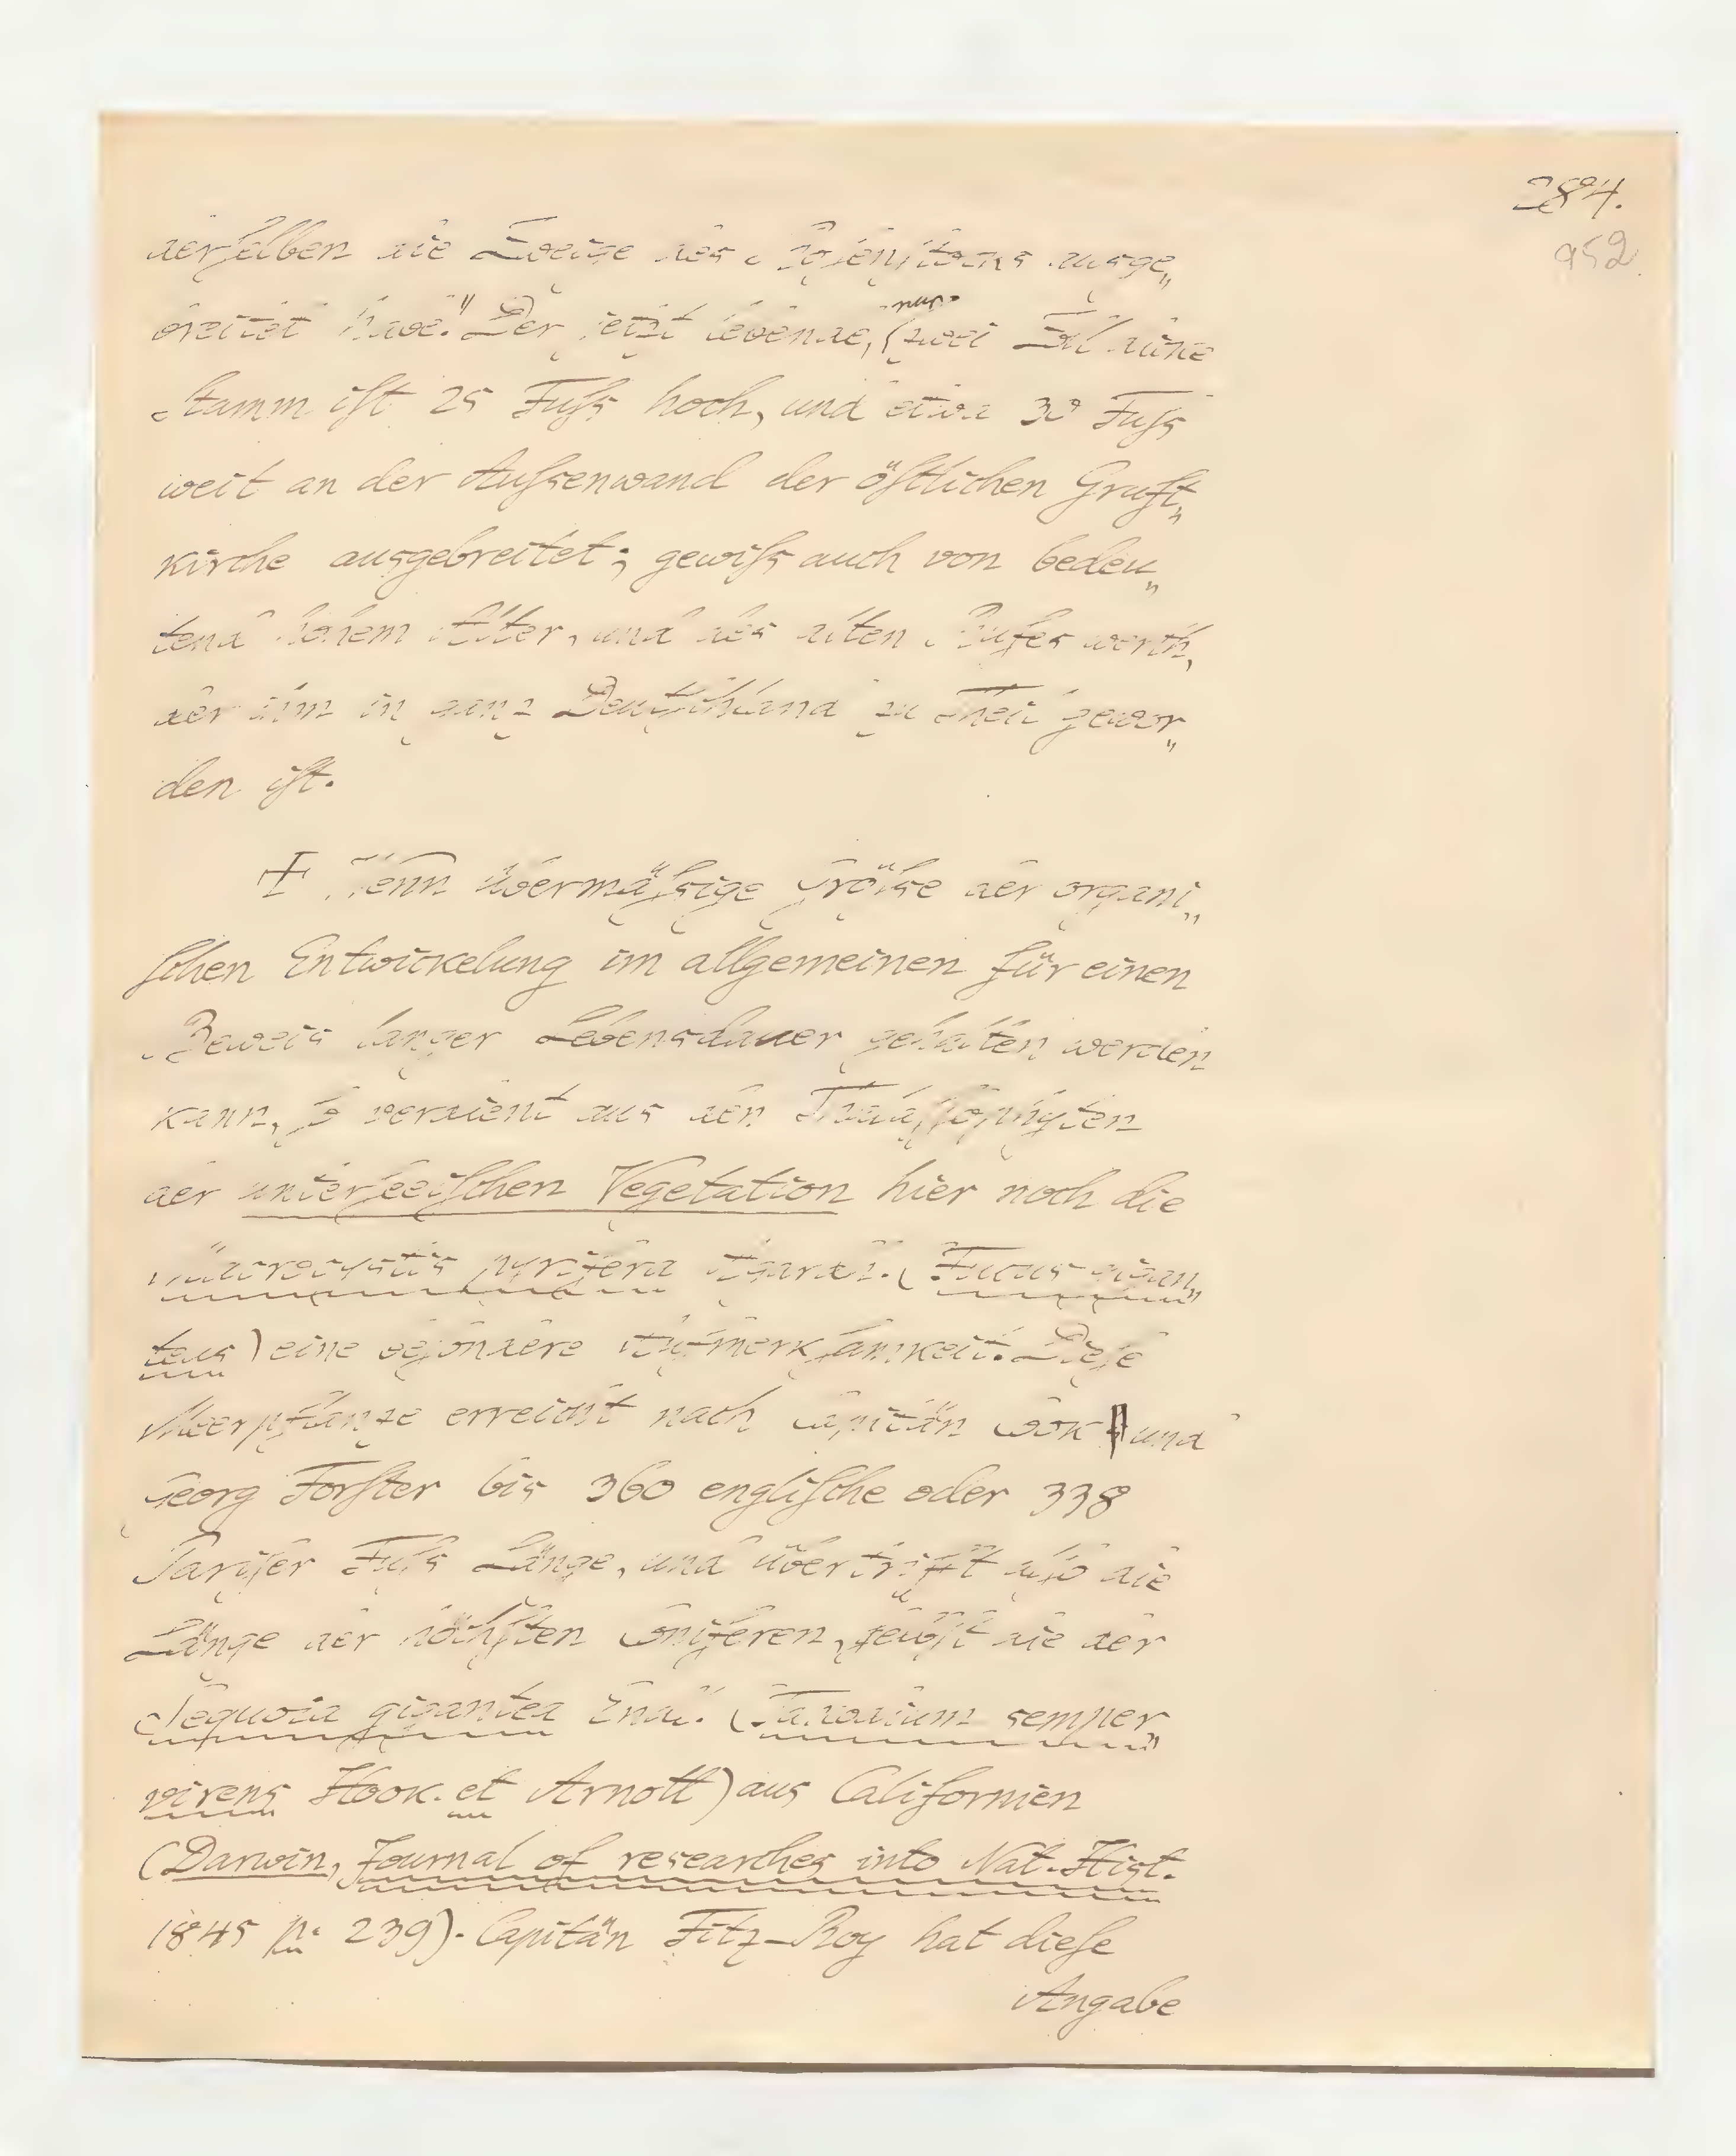 284.
952
derselben die Zweige des Rosenstocks ausge„
breitet habe." Der jetzt lebende, (nur zwei Zoll dicke
Stamm ist 25 Fuss hoch, und etwa 30 Fuss
weit an der Aussenwand der östlichen Gruft„
kirche ausgebreitet; gewiss auch von bedeu„
tend hohem Alter, und des alten Rufes werth,
der ihm in ganz Deutschland zu Theil gewor„
den ist.
Wenn übermässige Grösse der organi„
schen Entwickelung im allgemeinen für einen
Beweis langer Lebensdauer gehalten werden
kann, so verdient aus den Thalassophyten
der unterseeischen Vegetation hier noch die
Macrocystis pyrifera Agardh. (Fucus gigan„
teus) eine besondere Aufmerksamkeit. Diese
Meerpflanze erreicht nach Capitän Cook und
Georg Forster bis 360 englische oder 338
Pariser Fuss Länge, und übertrifft also die
Länge der höchsten Coniferen, selbst die der
Sequoia gigantea Endl. (Taxodium semper„
virens Hook. et Arnott) aus Californien
(Darwin, Journal of researches into Nat. Hist.
1845 p. 239). Capitän Fitz-Roy hat diese
Angabe